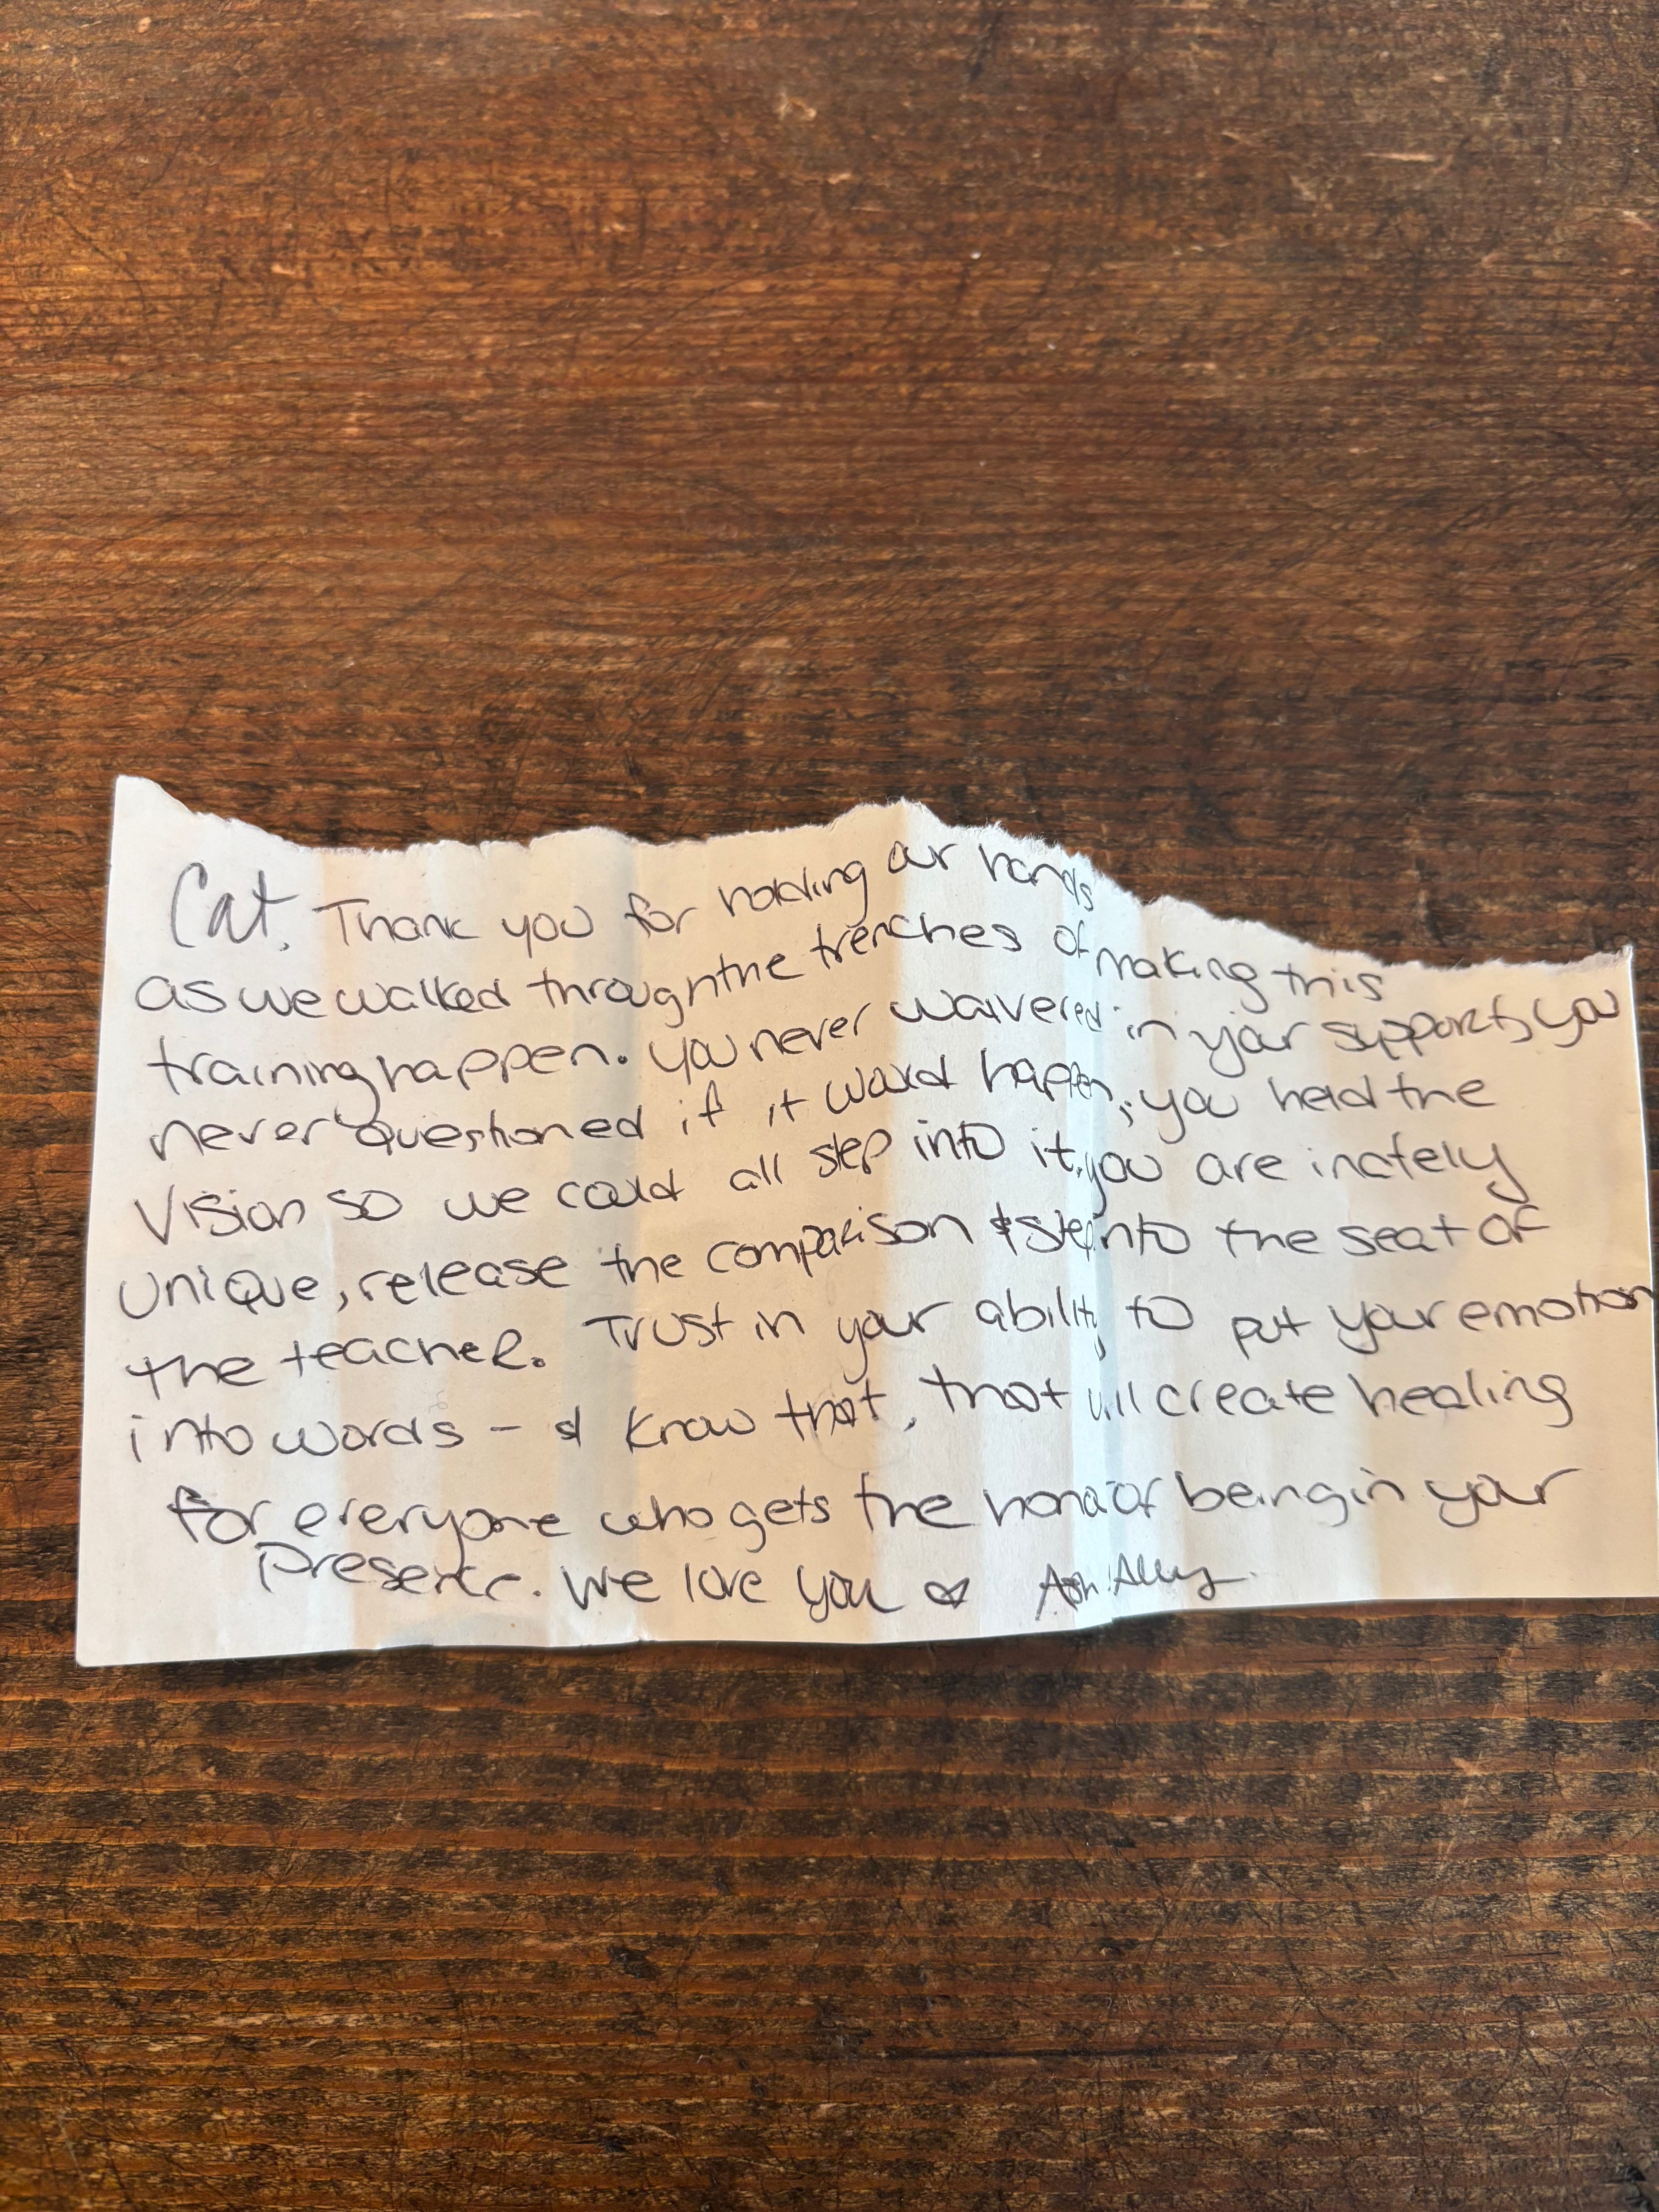 Cat, Thank you for holding our hands
as we walked through the trenches of making this
training happen. You never waivered in your support, you
never questioned if it would happen, you held the
vision so we could all step into it. you are inately
unique, release the comparison & step into the seat of
the teacher. Trust in your ability to put your emotion
into words - & know that, that will create healing
for everyone who gets the honor of being in your
presence. We love you ♡ Ash